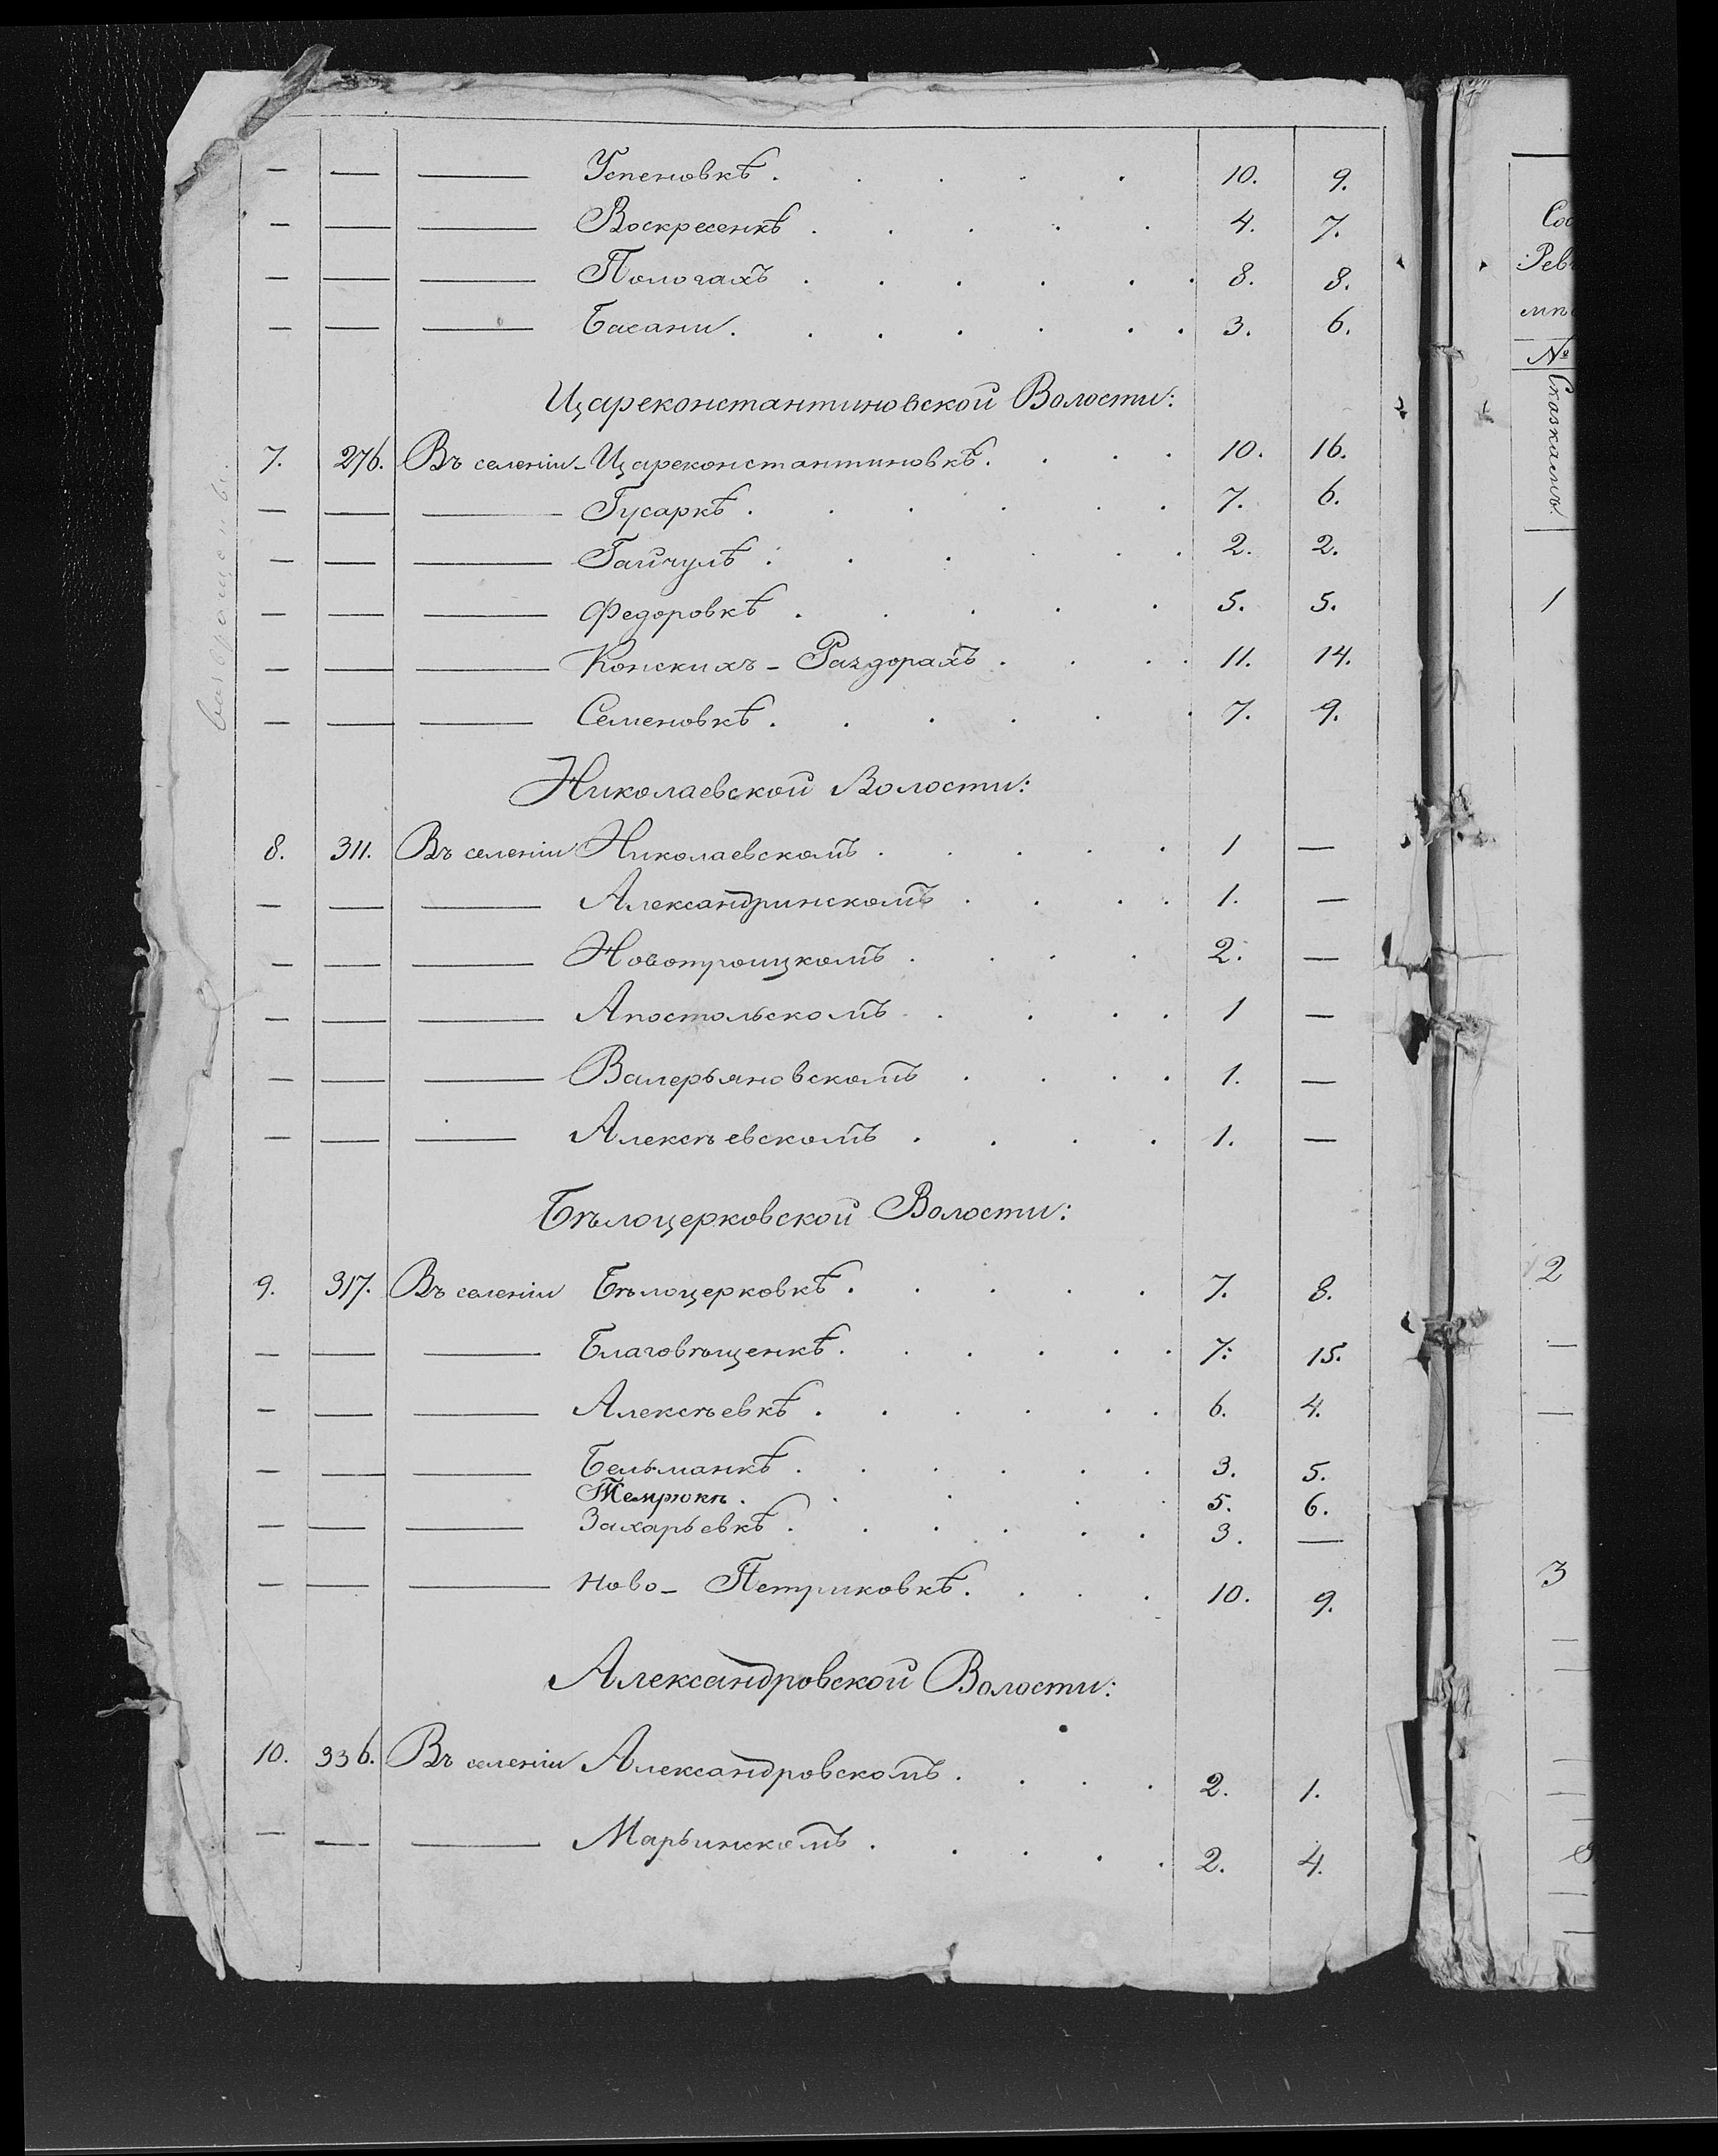 — — — Успеновкѣ . . . . . 10. 9.
— — — Воскресенкѣ . . . . . 4. 7.
— — — Пологахъ . . . . . . 8. 8.
— — — Басани . . . . . . . 3. 6.
Цареконстантиновской Волости:
7. 276. Въ селеніи - Цареконстантиновкѣ . . . . 10. 16.
— — — Гусаркѣ . . . . . . 7. 6.
— — — Гайчулѣ . . . . . . 2. 2.
— — — Федоровкѣ . . . . . 5. 5.
— — — Конскихъ - Раздорахъ . . . . 11. 14.
— — — Семеновкѣ . . . . . . 7. 9.
Николаевской Волости:
8. 311. Въ селеніи Николаевскомъ . . . . . 1 —
— — — Александринскомъ . . . . 1. —
— — — Новотроицкомъ . . . . 2. —
— — — Апостольскомъ . . . . 1 —
— — — Валерьяновскомъ . . . . 1. —
— — — Алексѣевскомъ . . . . 1. —
Бѣлоцерковской Волости:
9. 317. Въ селеніи Бѣлоцерковкѣ . . . . . 7. 8.
— — — Благовѣщенкѣ . . . . . . 7. 15.
— — — Алексѣевкѣ . . . . . . 6. 4.
— — — Бельманкѣ . . . . . . 3. 5.
Темрюкѣ . . . . . 5. 6.
— — — Захарьевкѣ . . . . . . 3. —
— — — Ново- Петриковкѣ . . . . 10. 9.
Александровской Волости:
10. 336. Въ селеніи Александровскомъ . . . . 2. 1.
— — — Марьинскомъ . . . . . 2. 4.
№
Сказкамъ.
1
2
3